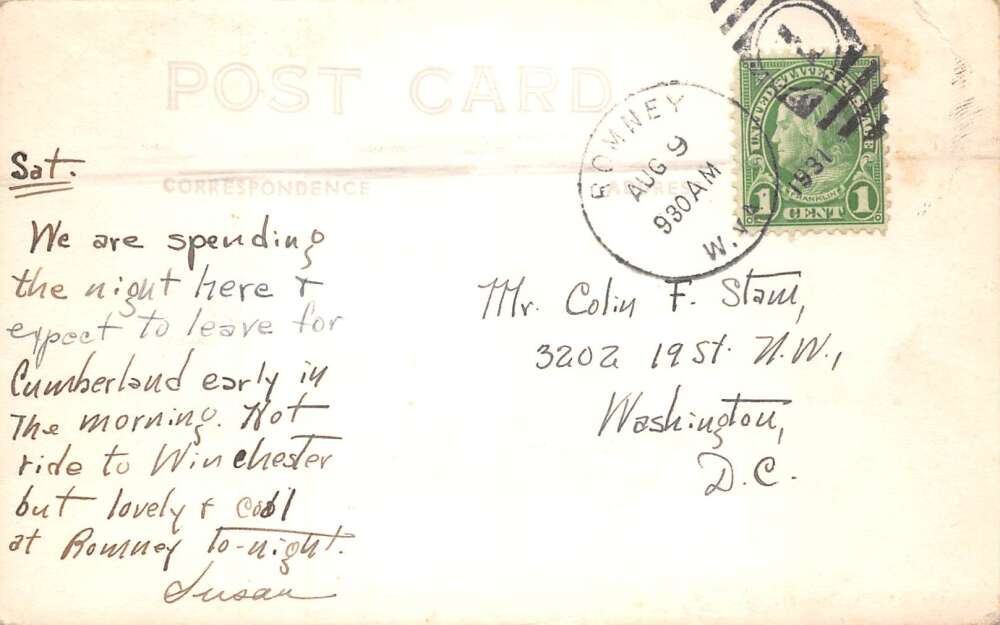 POST CARD
CORRESPONDENCE
ADDRESS
ROMNEY
AUG 9
930 AM
1931
W.VA.
UNITED STATES POSTAGE
FRANKLIN
1 CENT 1
Sat.
We are spending
the night here +
expect to leave for
Cumberland early in
The morning. Hot
ride to Winchester
but lovely + cool
at Romney to-night.
Susan
Mr. Colin F. Stam,
3202 19 St. N.W.,
Washington,
D.C.